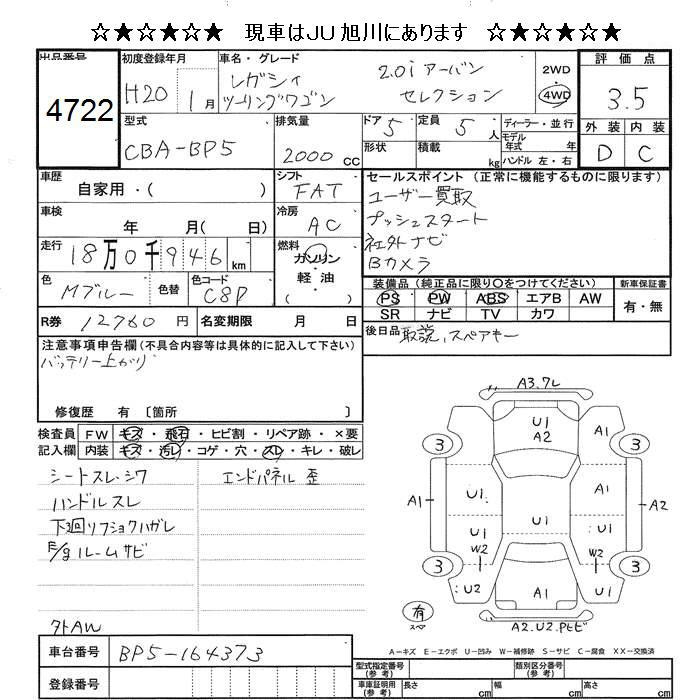 ☆★☆★☆★ 現車はJU旭川にあります ☆★☆★☆★
出品番号
4722
初度登録年月
H20 1月
車名・グレード
レガシィ
ツーリングワゴン
2.0i アーバン
セレクション
2WD
4WD
評価点
3.5
外装 内装
D C
型式
CBA-BP5
排気量
2000 cc
ドア 5
形状
定員 5 人
積載 kg
ディーラー・並行
モデル年式 年
ハンドル 左・右
車歴
自家用・( )
シフト
FAT
車検
年 月( 日)
冷房
AC
走行
18万0千946 km
燃料
ガソリン
軽油
( )
色
Mブルー
色替
色コード
C8P
R券 12760 円
名変期限 月 日
セールスポイント (正常に機能するものに限ります)
ユーザー買取
プッシュスタート
社外ナビ
Bカメラ
装備品 (純正品に限り○をつけてください)
新車保証書
PS PW ABS エアB AW
SR ナビ TV カワ
有・無
後日品 取説、スペアキー
注意事項申告欄(不具合内容等は具体的に記入して下さい)
バッテリー上がり
修復歴 有 〔箇所 〕
検査員 FW キズ・飛石・ヒビ割・リペア跡・×要
記入欄 内装 キズ・汚レ・コゲ・穴・スレ・キレ・破レ
シートスレ・シワ
ハンドルスレ
下廻リフショクハガレ
E/gルームサビ
エンドパネル 歪
外AW
A3.7L
U1
A2
A1
3
3
A1
U1
A1
A2
U1
U1
U1
W2
W2
3
3
U2
A1
U1
有
スペア
A2.U2.PヒビA
A=キズ E=エクボ U=凹み W=補修跡 S=サビ C=腐食 XX=交換済
車台番号 BP5-164373
登録番号
型式指定番号(参考)
類別区分番号(参考)
車庫証明用(参考) 長さ cm 幅 cm 高さ cm